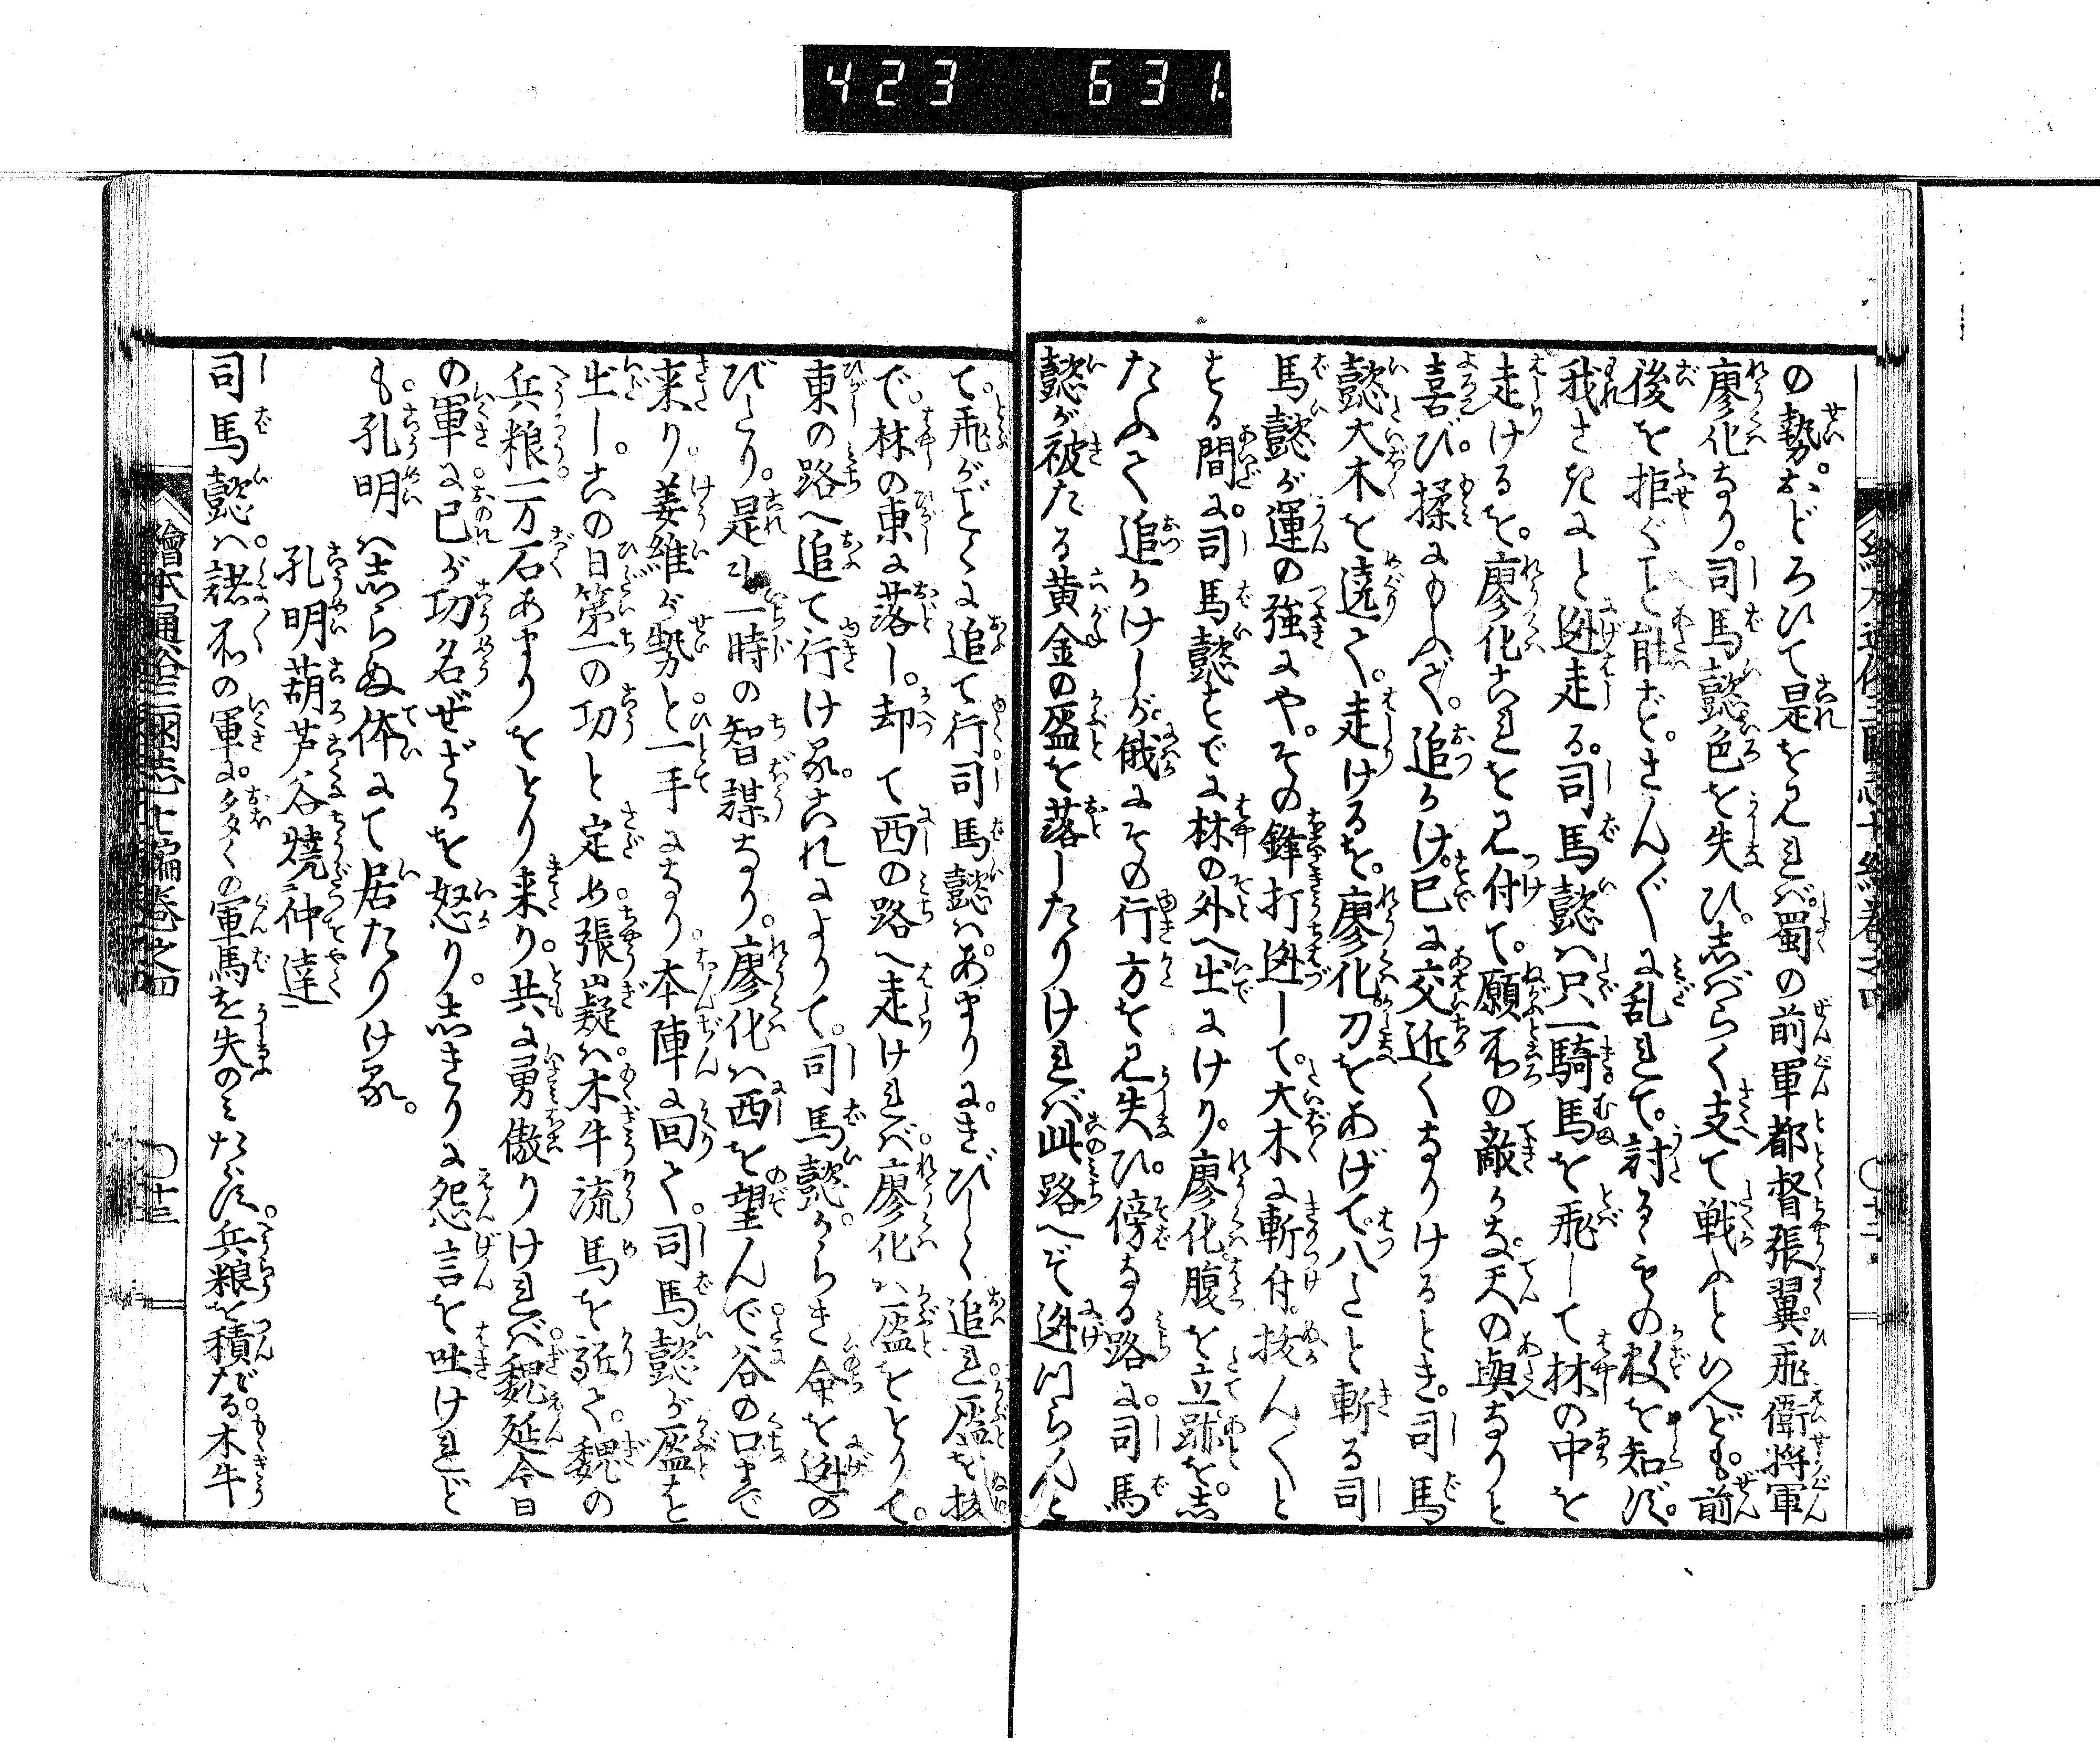 423 631
の勢。おどろひて是を見れば。蜀の前軍都督張翼。飛衛将軍
廖化なり。司馬懿色を失ひ。志ばらく支て戦ふといへども。前
後を拒ぐこと能ず。さんぐに乱れて。討るゝもの数を知ず。
我さきにと迯走る。司馬懿ハ只一騎。馬を飛して林の中を
走けるを。廖化これを見付て。願所の敵かな。天の與なりと
喜び。揉にもんで。追かけ。已に交近くなりけるとき。司馬
懿大木を遶て。走けるを。廖化刀をあげて。八たと斬る司
馬懿が運の強にや。その鋒打迯して。大木に斬付。抜んくと
する間に。司馬懿すでに林の外へ出にけり。廖化。腹を立跡を。志
たふて追かけしが俄にその行方を見失ひ。傍なる路に。司馬
懿が被たる黄金の盔を落したりければ此路へぞ迯つらんと
て。飛がごとくに追て行。司馬懿ハ。あまりに。きびしく追れ。盔を抜
で。林の東に落し。却て西の路へ走ければ。廖化ハ盔をとりて。
東の路へ追て行ける。これによりて。司馬懿。からき命を迯の
びたり。是は一時の智謀なり。廖化ハ西を望んで。谷の口まで
来り。姜維が勢と。一手になり。本陣に回て。司馬懿が盔を
出し。この日第一の功と定め。張嶷ハ。木牛流馬を駈て。魏の
兵粮一万石あまりをとり来り。共に勇傲りければ。魏延今日
の軍に。已が功名ぜざるを怒り。志きりに怨言を吐けれど
も。孔明ハ志らぬ体にて居たりける。
孔明葫芦谷燒二仲達一
司馬懿ハ。諸所の軍に。多くの軍馬を失のみたらず。兵粮を積だる。木牛
繪本通俗三國志七編巻之四